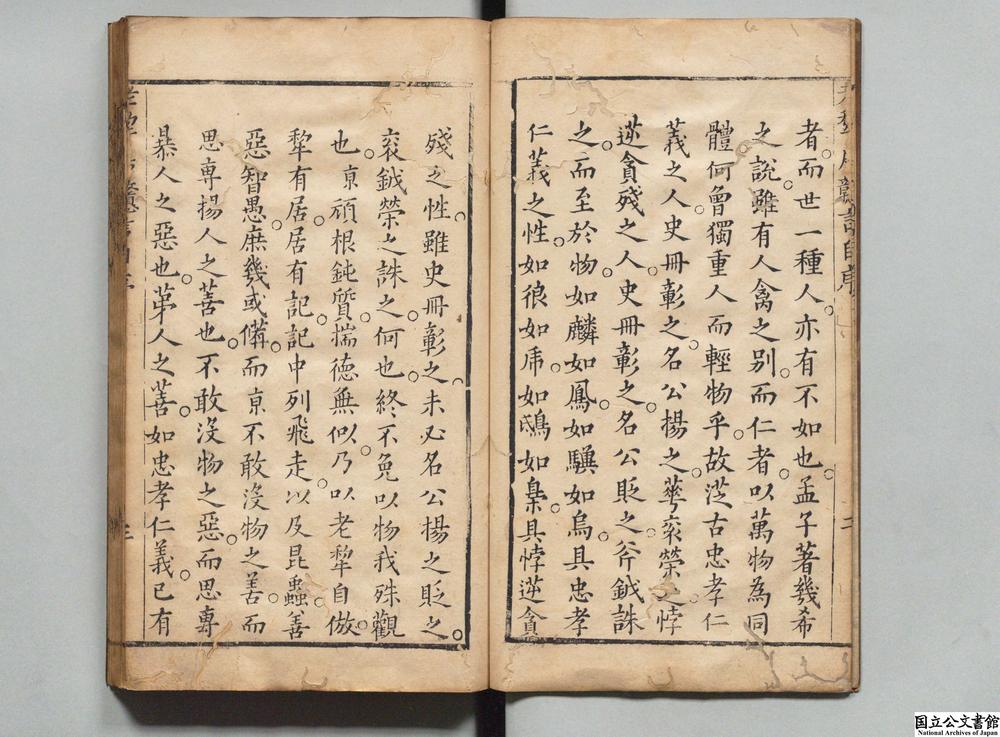 者而世一種人亦有不如也孟子著幾希
之說雖有人禽之别而仁者以萬物為同
體何曾獨重人而輕物乎故從古忠孝仁
義之人史冊彰之名公揚之華衮榮之悖
逆貪殘之人史冊彰之名公貶之斧鉞誅
之而至於物如麟如鳳如驥如烏具忠孝
仁義之性如狼如虎如鴟如梟具悖逆貪
殘之性雖史冊彰之未必名公揚之貶之
衮鉞榮之誅之何也終不免以物我殊觀
也京頑根鈍質揣德無似乃以老犂自倣
犂有居居有記記中列飛走以及昆蟲善
惡智愚庶幾或備而京不敢沒物之善而
思專揚人之善也不敢沒物之惡而思專
暴人之惡也苐人之善如忠孝仁義已有
三
国立公文書館
National Archives of Japan